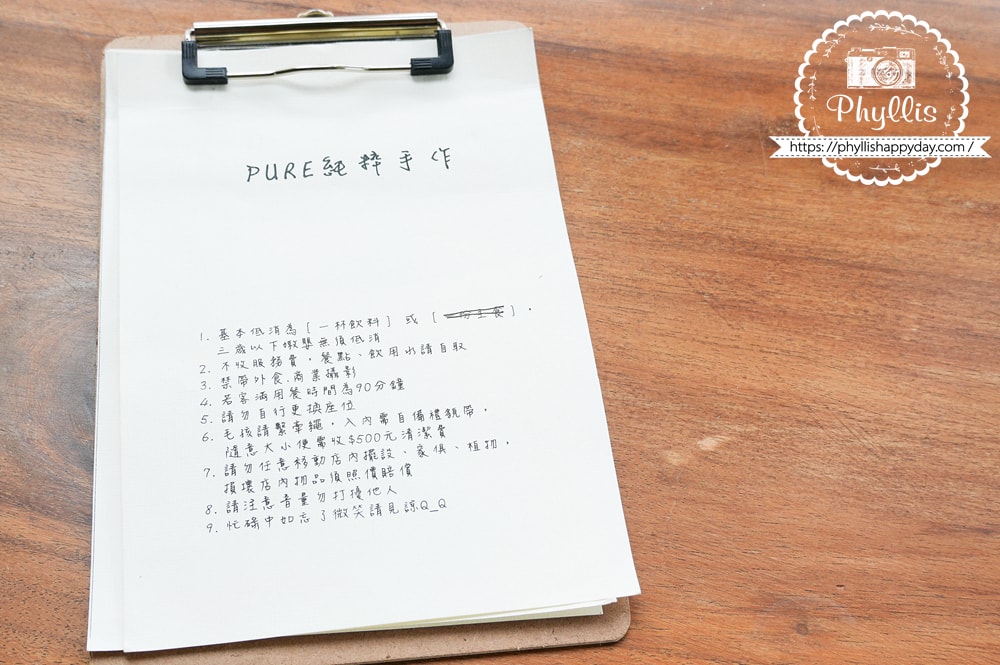 PURE純粹手作
1. 基本低消為[一杯飲料]或[一份主食],
三歲以下嫩嬰無須低消
2. 不收服務費,餐點、飲用水請自取
3. 禁帶外食.商業攝影
4. 若客滿用餐時間為90分鐘
5. 請勿自行更換座位
6. 毛孩請繫牽繩,入內需自備禮貌帶,
隨意大小便需收$500元清潔費
7. 請勿任意移動店內擺設、家俱、植物,
損壞店內物品須照價賠償
8. 請注意音量勿打擾他人
9. 忙碌中如忘了微笑請見諒Q_Q
Phyllis
https://phyllishappyday.com/